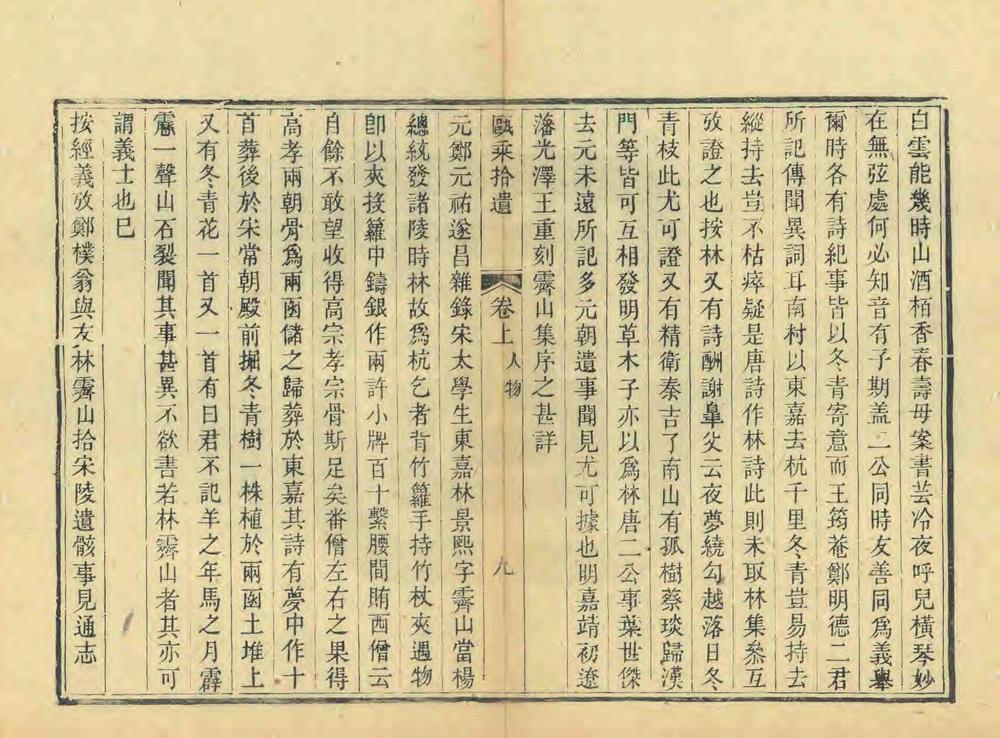 白雲能幾時山酒栢香春壽母案書芸冷夜呼兒橫琴妙
在無弦處何必知音有子期盖二公同時友善同爲義舉
爾時各有詩紀事皆以冬青寄意而王筠菴鄭明德二君
所記傳聞異詞耳南村以東嘉去杭千里冬青豈易持去
縱持去豈不枯瘁疑是唐詩作林詩此則未取林集叅互
攷證之也按林又有詩酬謝臯父云夜夢繞勾越落日冬
青枝此尤可證又有精衛秦吉了南山有孤樹蔡琰歸漢
門等皆可互相發明草木子亦以爲林唐二公事葉世傑
去元未遠所記多元朝遺事聞見尤可據也明嘉靖初遼
藩光澤王重刻霽山集序之甚詳
甌乘拾遺 卷上 人物 九
元鄭元祐遂昌雜錄宋太學生東嘉林景熙字霽山當楊
總統發諸陵時林故爲杭乞者背竹籮手持竹杖夾遇物
卽以夾投籮中鑄銀作兩許小牌百十繫腰間賄西僧云
自餘不敢望收得高宗孝宗骨斯足矣番僧左右之果得
高孝兩朝骨爲兩函儲之歸葬於東嘉其詩有夢中作十
首葬後於宋常朝殿前掘冬青樹一株植於兩函土堆上
又有冬青花一首又一首有曰君不記羊之年馬之月霹
靂一聲山石裂聞其事甚異不欲書若林霽山者其亦可
謂義士也巳
按經義攷鄭樸翁與友林霽山拾宋陵遺骸事見通志